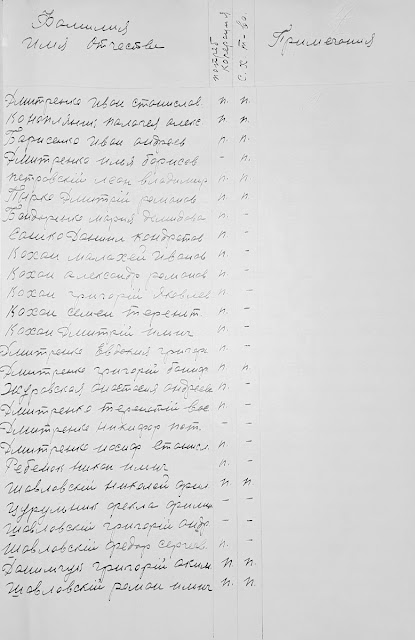 Фамилия
имя отчество
потреб кооперация
с. х. т-во
Примечания
Дмитренко Иван Станислав. п. п.
Конопляник палагея алекс п. п.
Барисенко Иван андреев п. п.
Дмитренко илья борисов - п.
петровскій леон владимир п. п
Пирко Дмитрій романов п. п
Бондаренко мария демидова п. -
Сошко Данилл кондратов п. -
Кохан малахей Иванов п. -
Кохан александр романов п. -
Кохан григорій Яковлев п. -
Кохан семен терент. п. -
Кохан Дмитрій илич п. -
Дмитренко Евдокия григор п. -
Дмитренко григорій бониф п. п
Журавская анастасия андреева п. -
Дмитренко терентій вас п. -
Дмитренко никифор пот. - -
Дмитренко иосиф Станисл. п. -
Ребенок никон илич п. -
Шавловскій николой фил п. п.
Цурульник фекла филип - -
Шавловскій григорій андр - -
Шавловскій федор сергеев. п. -
Данильчук григорій аким п. п.
Шавловскій роман илич п. п.